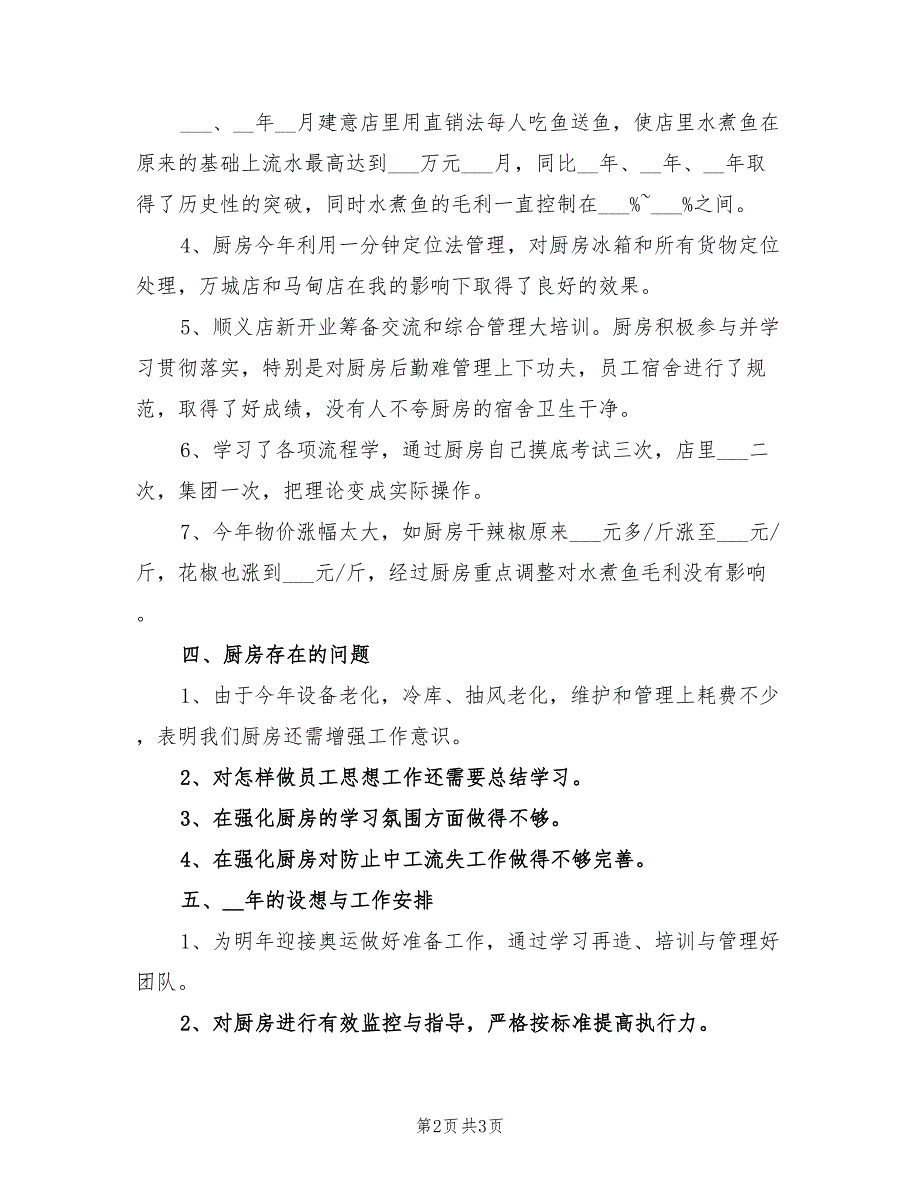 ___、__年__月建意店里用直销法每人吃鱼送鱼，使店里水煮鱼在
原来的基础上流水最高达到___万元___月，同比__年、__年、__年取
得了历史性的突破，同时水煮鱼的毛利一直控制在___%~___%之间。
4、厨房今年利用一分钟定位法管理，对厨房冰箱和所有货物定位
处理，万城店和马甸店在我的影响下取得了良好的效果。
5、顺义店新开业筹备交流和综合管理大培训。厨房积极参与并学
习贯彻落实，特别是对厨房后勤难管理上下功夫，员工宿舍进行了规
范，取得了好成绩，没有人不夸厨房的宿舍卫生干净。
6、学习了各项流程学，通过厨房自己摸底考试三次，店里___二
次，集团一次，把理论变成实际操作。
7、今年物价涨幅太大，如厨房干辣椒原来___元多/斤涨至___元/
斤，花椒也涨到___元/斤，经过厨房重点调整对水煮鱼毛利没有影响
。
四、厨房存在的问题
1、由于今年设备老化，冷库、抽风老化，维护和管理上耗费不少
，表明我们厨房还需增强工作意识。
2、对怎样做员工思想工作还需要总结学习。
3、在强化厨房的学习氛围方面做得不够。
4、在强化厨房对防止中工流失工作做得不够完善。
五、__年的设想与工作安排
1、为明年迎接奥运做好准备工作，通过学习再造、培训与管理好
团队。
2、对厨房进行有效监控与指导，严格按标准提高执行力。
第2页 共3页